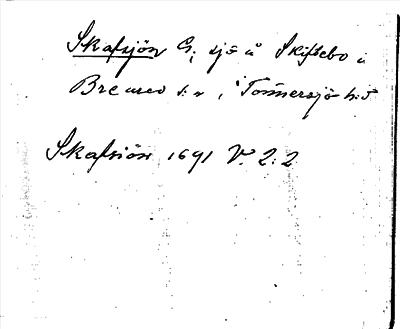 Skafsjön G; sjö å Skiftebo i
Breared s:n, i Tönnersjö h:d
Skafsiön 1691 V. 2:2